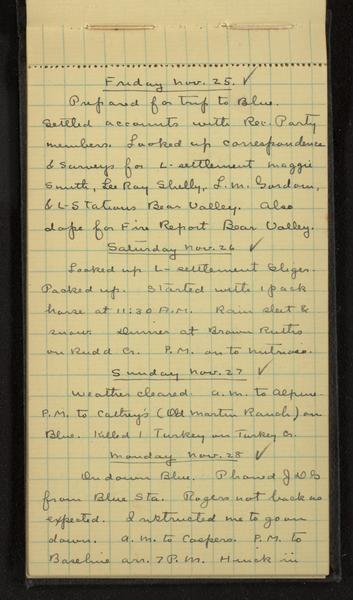 Friday Nov. 25. ✓
Prepared for trip to Blue.
Settled accounts with Rec. Party
members. Looked up correspondence
& Surveys for L-settlement Maggie
Smith, Lee Ray Shelly, L.M. Gordon,
& L-Stations Bear Valley. Also
dope for Fire Report Bear Valley.
Saturday Nov. 26 ✓
Looked up L-settlement Eliger.
Packed up. Started with 1 pack
horse at 11:30 A.M. Rain sleet &
snow. Dinner at Brown Butlers
on Rudd Cr. P.M. on to Nutrioso.
Sunday Nov. 27 ✓
Weather cleared. A.M. to Alpine.
P.M. to (Old Martin Ranch) on
Blue. Killed 1 Turkey on Turkey Cr.
Monday Nov. 28 ✓
On down Blue. Phoned J D G
from Blue Sta. Rogers not back as
expected. J instructed me to go on
down. A.M. to Coopers. P.M. to
Baseline arr. 7 P.M. in